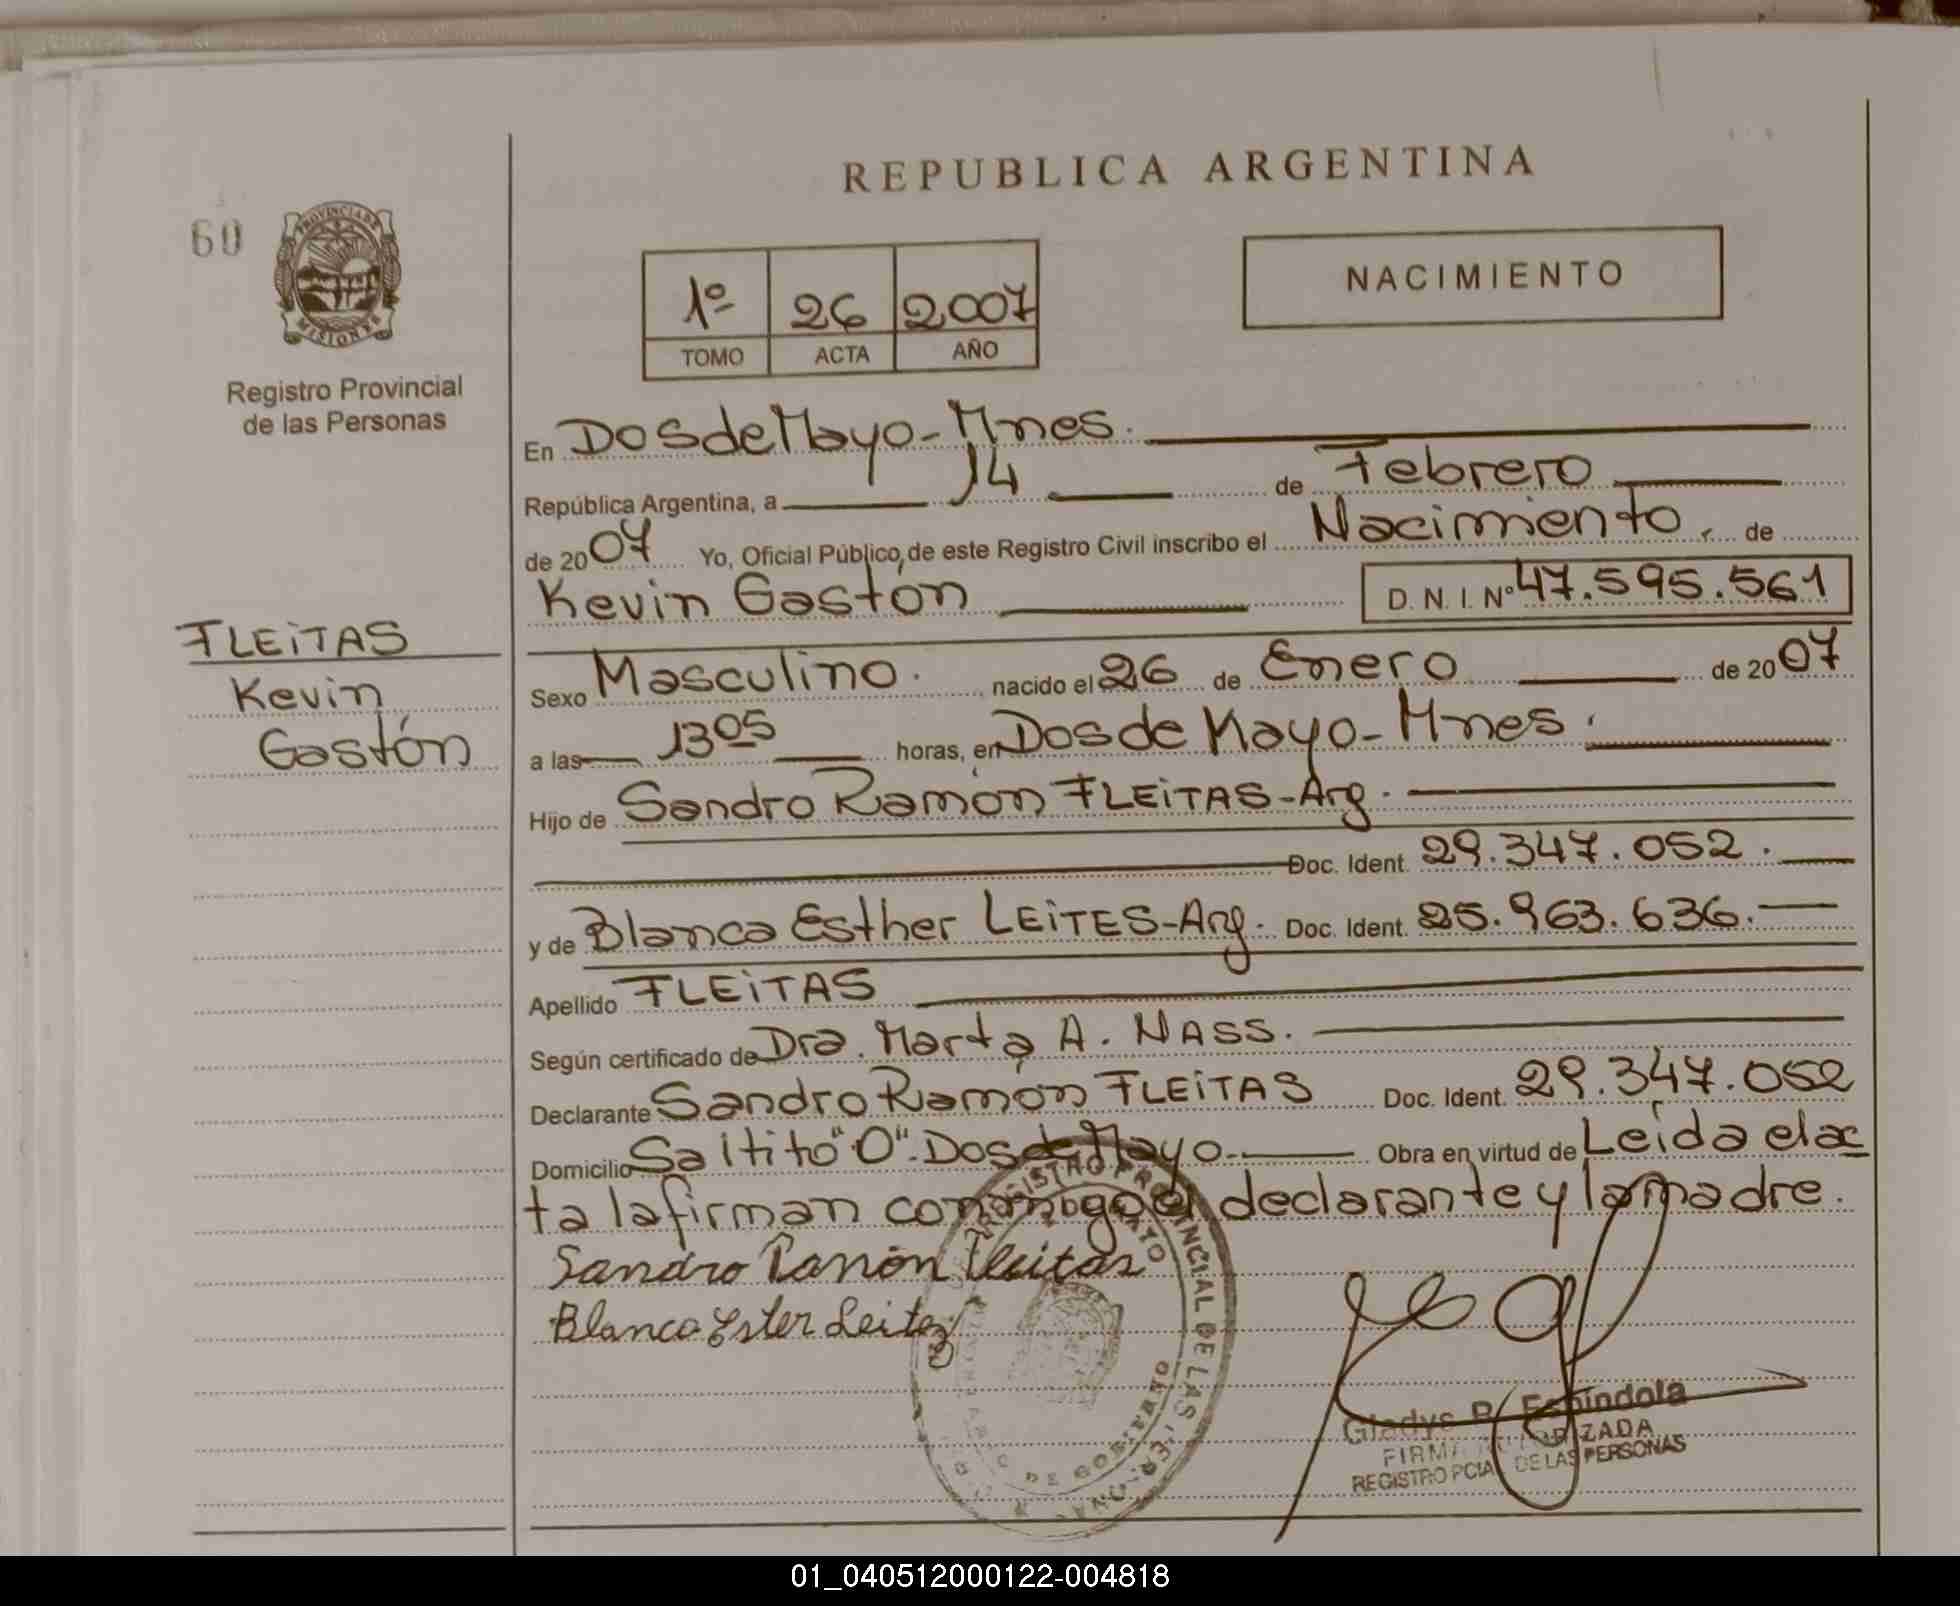 REPUBLICA ARGENTINA
60
PROVINCIA DE
MISIONES
Registro Provincial
de las Personas
1º 26 2007
TOMO ACTA AÑO
NACIMIENTO
En Dos de Mayo - Mnes.
República Argentina, a 14 de Febrero
de 2007 Yo, Oficial Público, de este Registro Civil inscribo el Nacimiento de
Kevin Gastón D. N. I. Nº 47.595.561
FLEITAS
Kevin
Gastón
Sexo Masculino. nacido el 26 de Enero de 2007
a las 1305 horas, en Dos de Mayo - Mnes.
Hijo de Sandro Ramón FLEITAS - Arg.
Doc. Ident. 29.347.052.
y de Blanca Esther LEITES - Arg. Doc. Ident. 25.963.636.
Apellido FLEITAS
Según certificado de Dra. Marta A. NASS.
Declarante Sandro Ramón FLEITAS Doc. Ident. 29.347.052
Domicilio Saltito "O". Dos de Mayo Obra en virtud de Leida el ac
ta la firman conmigo el declarante y la madre.
Sandro Ramón Fleitas
Blanca Ester Leitez
REGISTRO PROVINCIAL DE LAS PERSONAS
DE GOBIERNO
Gladys Espindola
FIRMA AUTORIZADA
REGISTRO PCIAL DE LAS PERSONAS
01_040512000122-004818